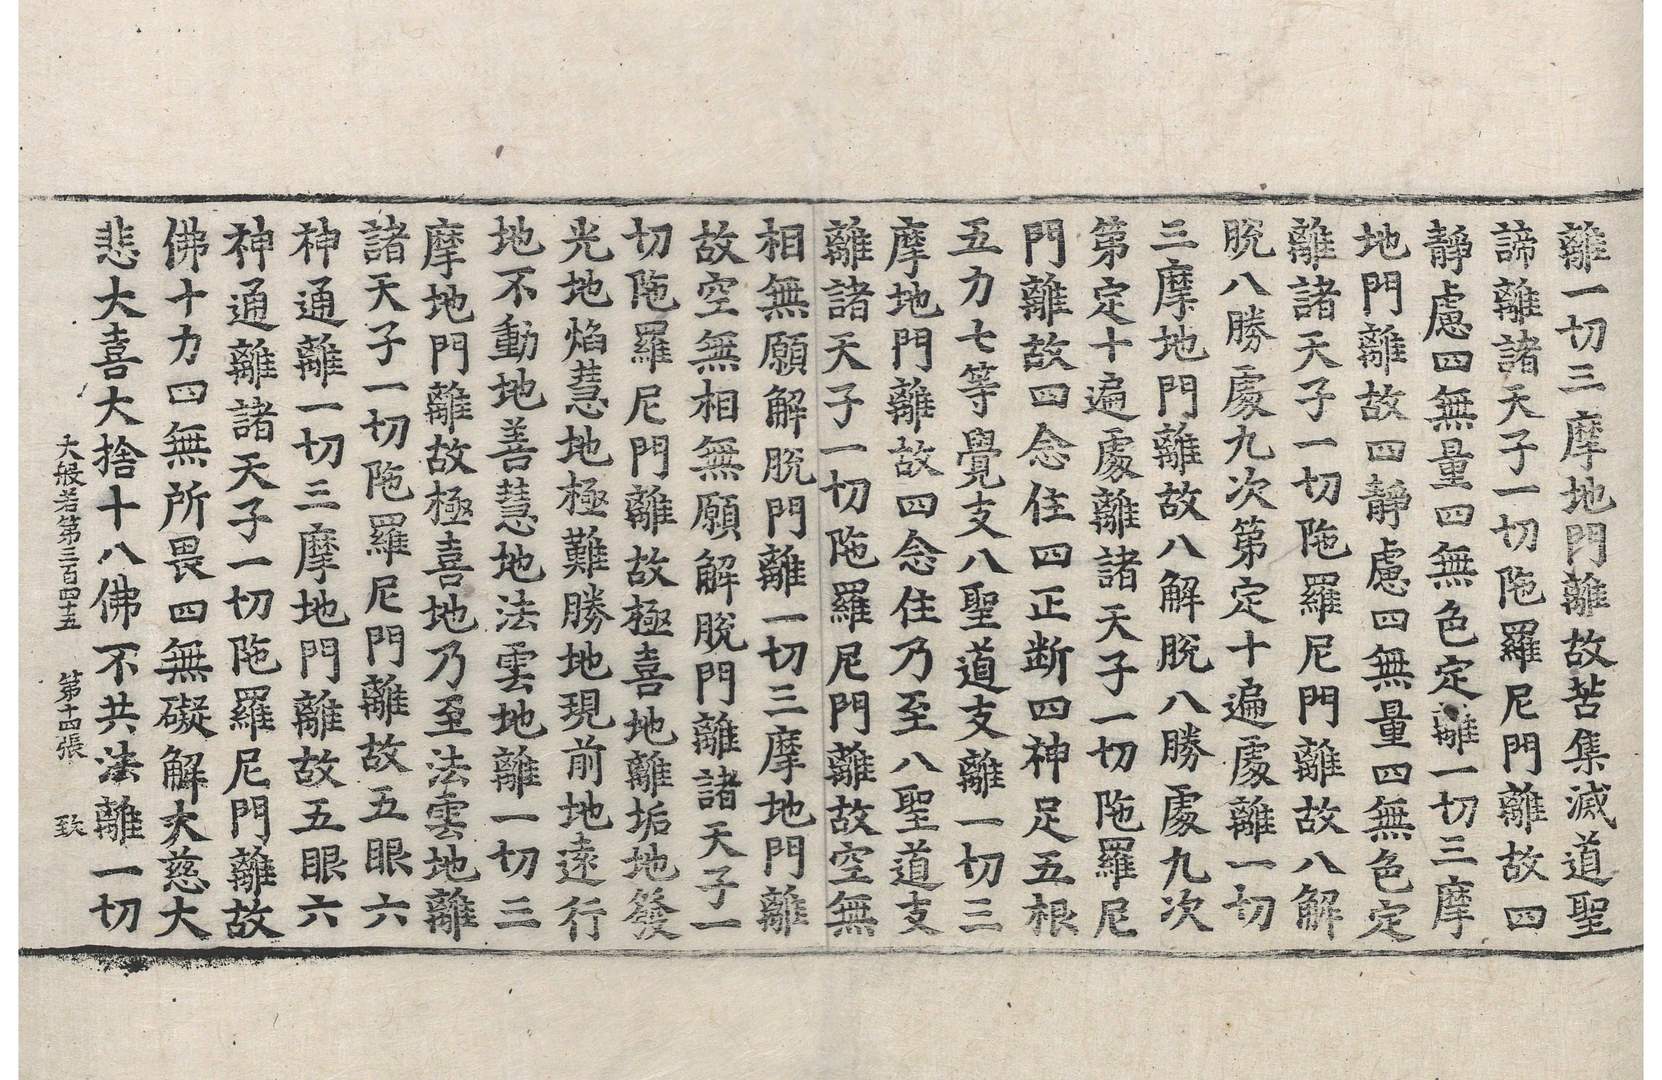 離一切三摩地門離故苦集滅道聖
諦離諸天子一切陁羅尼門離故四
靜慮四無量四無色定離一切三摩
地門離故四靜慮四無量四無色定
離諸天子一切陁羅尼門離故八解
脫八勝處九次第定十遍處離一切
三摩地門離故八解脫八勝處九次
第定十遍處離諸天子一切陁羅尼
門離故四念住四正断四神足五根
五力七等覺支八聖道支離一切三
摩地門離故四念住乃至八聖道支
離諸天子一切陁羅尼門離故空無
相無願解脫門離一切三摩地門離
故空無相無願解脫門離諸天子一
切陁羅尼門離故極喜地離垢地發
光地焰慧地極難勝地現前地遠行
地不動地善慧地法雲地離一切三
摩地門離故極喜地乃至法雲地離
諸天子一切陁羅尼門離故五眼六
神通離一切三摩地門離故五眼六
神通離諸天子一切陁羅尼門離故
佛十力四無所畏四無礙解大慈大
悲大喜大捨十八佛不共法離一切
大般若第三百四十五 第十四張 致